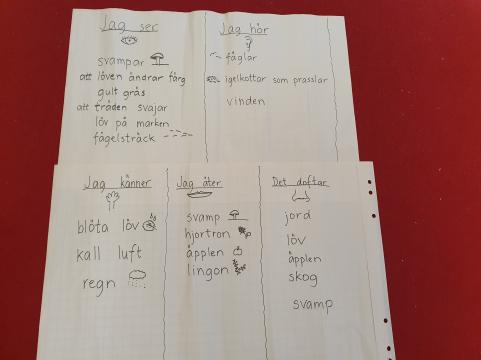 Jag ser
svampar
att löven ändrar färg
gult gräs
att träden svajar
löv på marken
fågelsträck
Jag hör
fåglar
igelkottar som prasslar
vinden
Jag känner
blöta löv
kall luft
regn
Jag äter
svamp
hjortron
äpplen
lingon
Det doftar
jord
löv
äpplen
skog
svamp